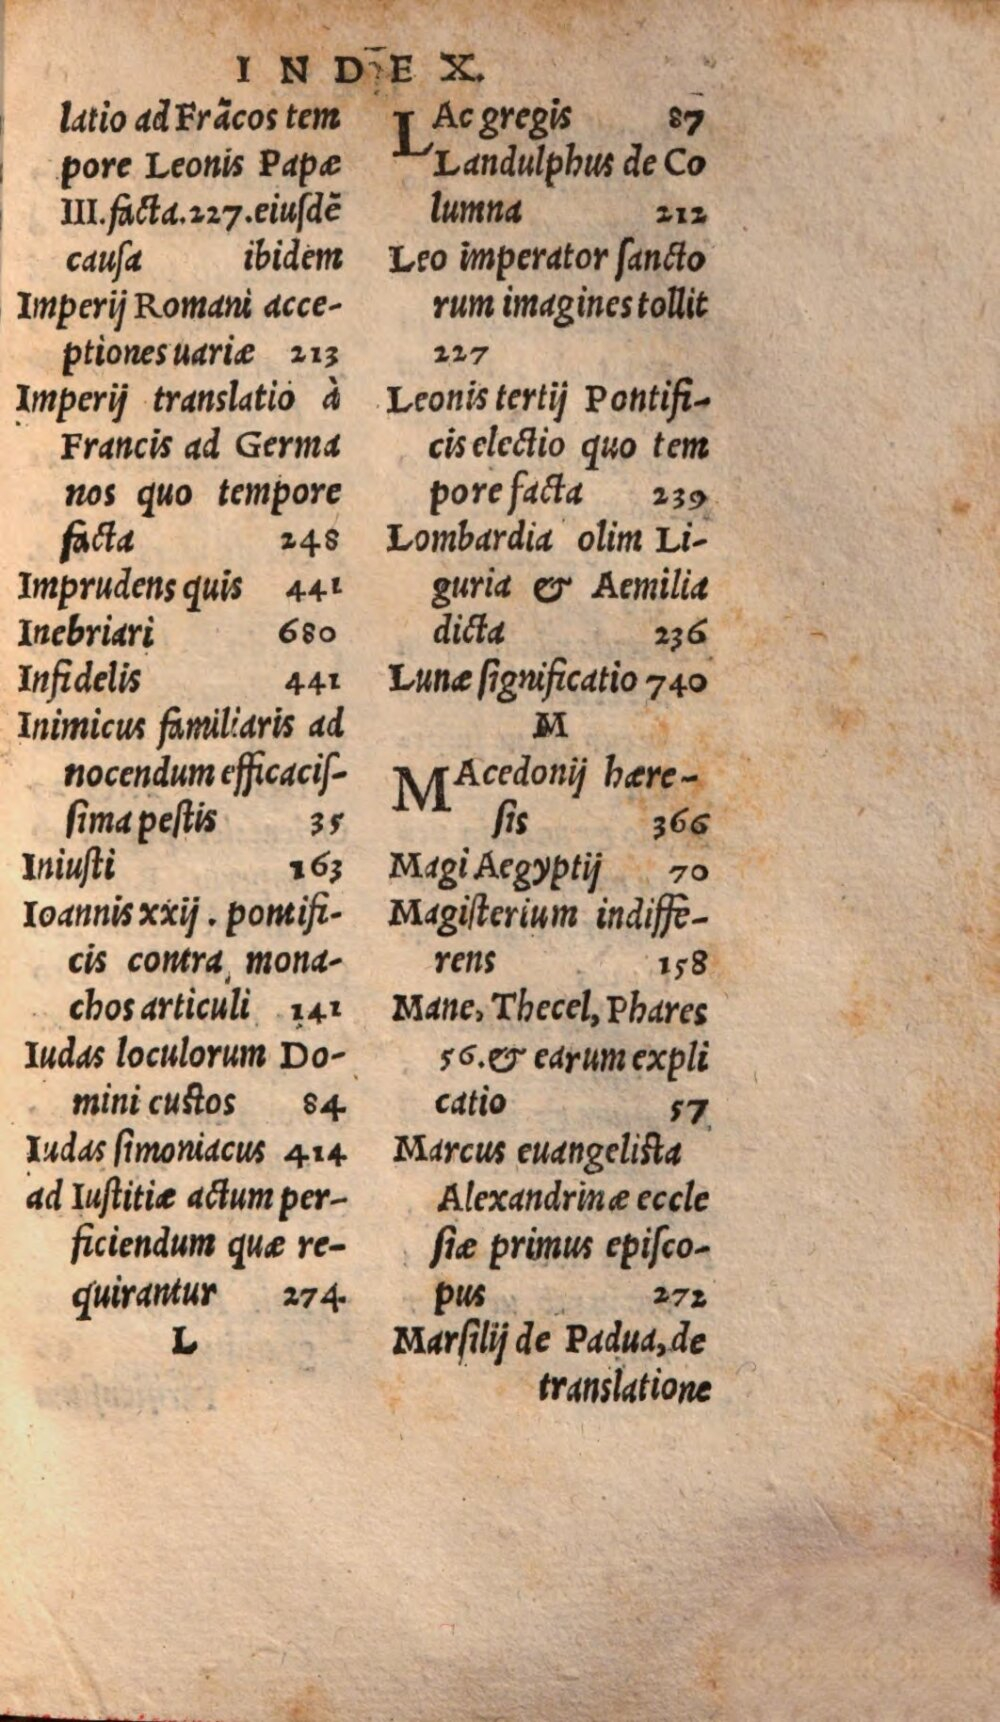 INDEX.
latio ad Frãcos tem
pore Leonis Papæ
III.facta.227.eiuſdẽ
cauſa ibidem
Imperij Romani acce-
ptiones uariæ 213
Imperij translatio à
Francis ad Germa
nos quo tempore
facta 248
Imprudens quis 441
Inebriari 680
Infidelis 441
Inimicus familiaris ad
nocendum efficaciſ-
ſima peſtis 35
Iniuſti 163
Ioannis xxij. pontifi-
cis contra mona-
chos articuli 141
Iudas loculorum Do-
mini cuſtos 84
Iudas ſimoniacus 414
ad Iuſtitiæ actum per-
ficiendum quæ re-
quirantur 274
L
LAc gregis 87
Landulphus de Co
lumna 212
Leo imperator ſancto
rum imagines tollit
227
Leonis tertij Pontifi-
cis electio quo tem
pore facta 239
Lombardia olim Li-
guria & Aemilia
dicta 236
Lunæ ſignificatio 740
M
MAcedonij hære-
ſis 366
Magi Aegyptij 70
Magiſterium indiffe-
rens 158
Mane, Thecel, Phares
56.& earum expli
catio 57
Marcus euangeliſta
Alexandrinæ eccle
ſiæ primus epiſco-
pus 272
Marſilij de Padua, de
translatione